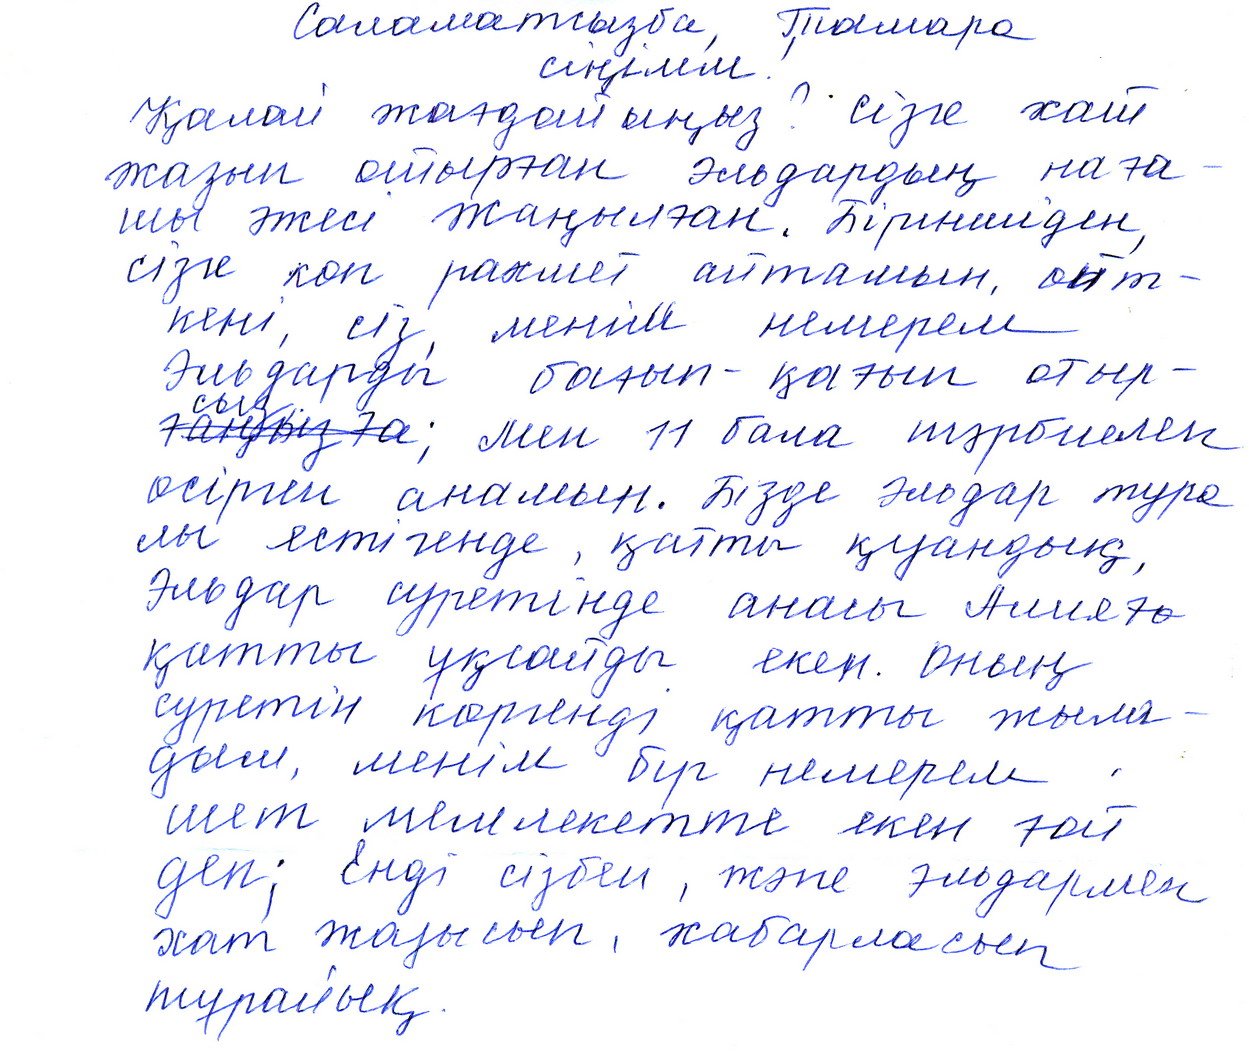 Саламатсызба, Тамара
сіңілім!
Қалай жағдайыңыз? Сізге хат
жазып отырған Эльдардың наға-
шы әжесі Жаңылған. Біріншіден,
сізге көп рахмет айтамын, өйт-
кені, сіз, менің немерем
Эльдарды бағып-қағып отыр-
сыз; Мен 11 бала тәрбиелеп
өсірген анамын. Бізде Эльдар тура
лы естігенде, қатты қуандық,
Эльдар суретінде анасы Алияға
қатты ұқсайды екен. Оның
суретін көргенді қатты жыла-
дым, менім бір немерем
шет мемлекетте екен ғой
деп; Енді сізбен, және Эльдармен
хат жазысып, хабарласып
тұрайық.